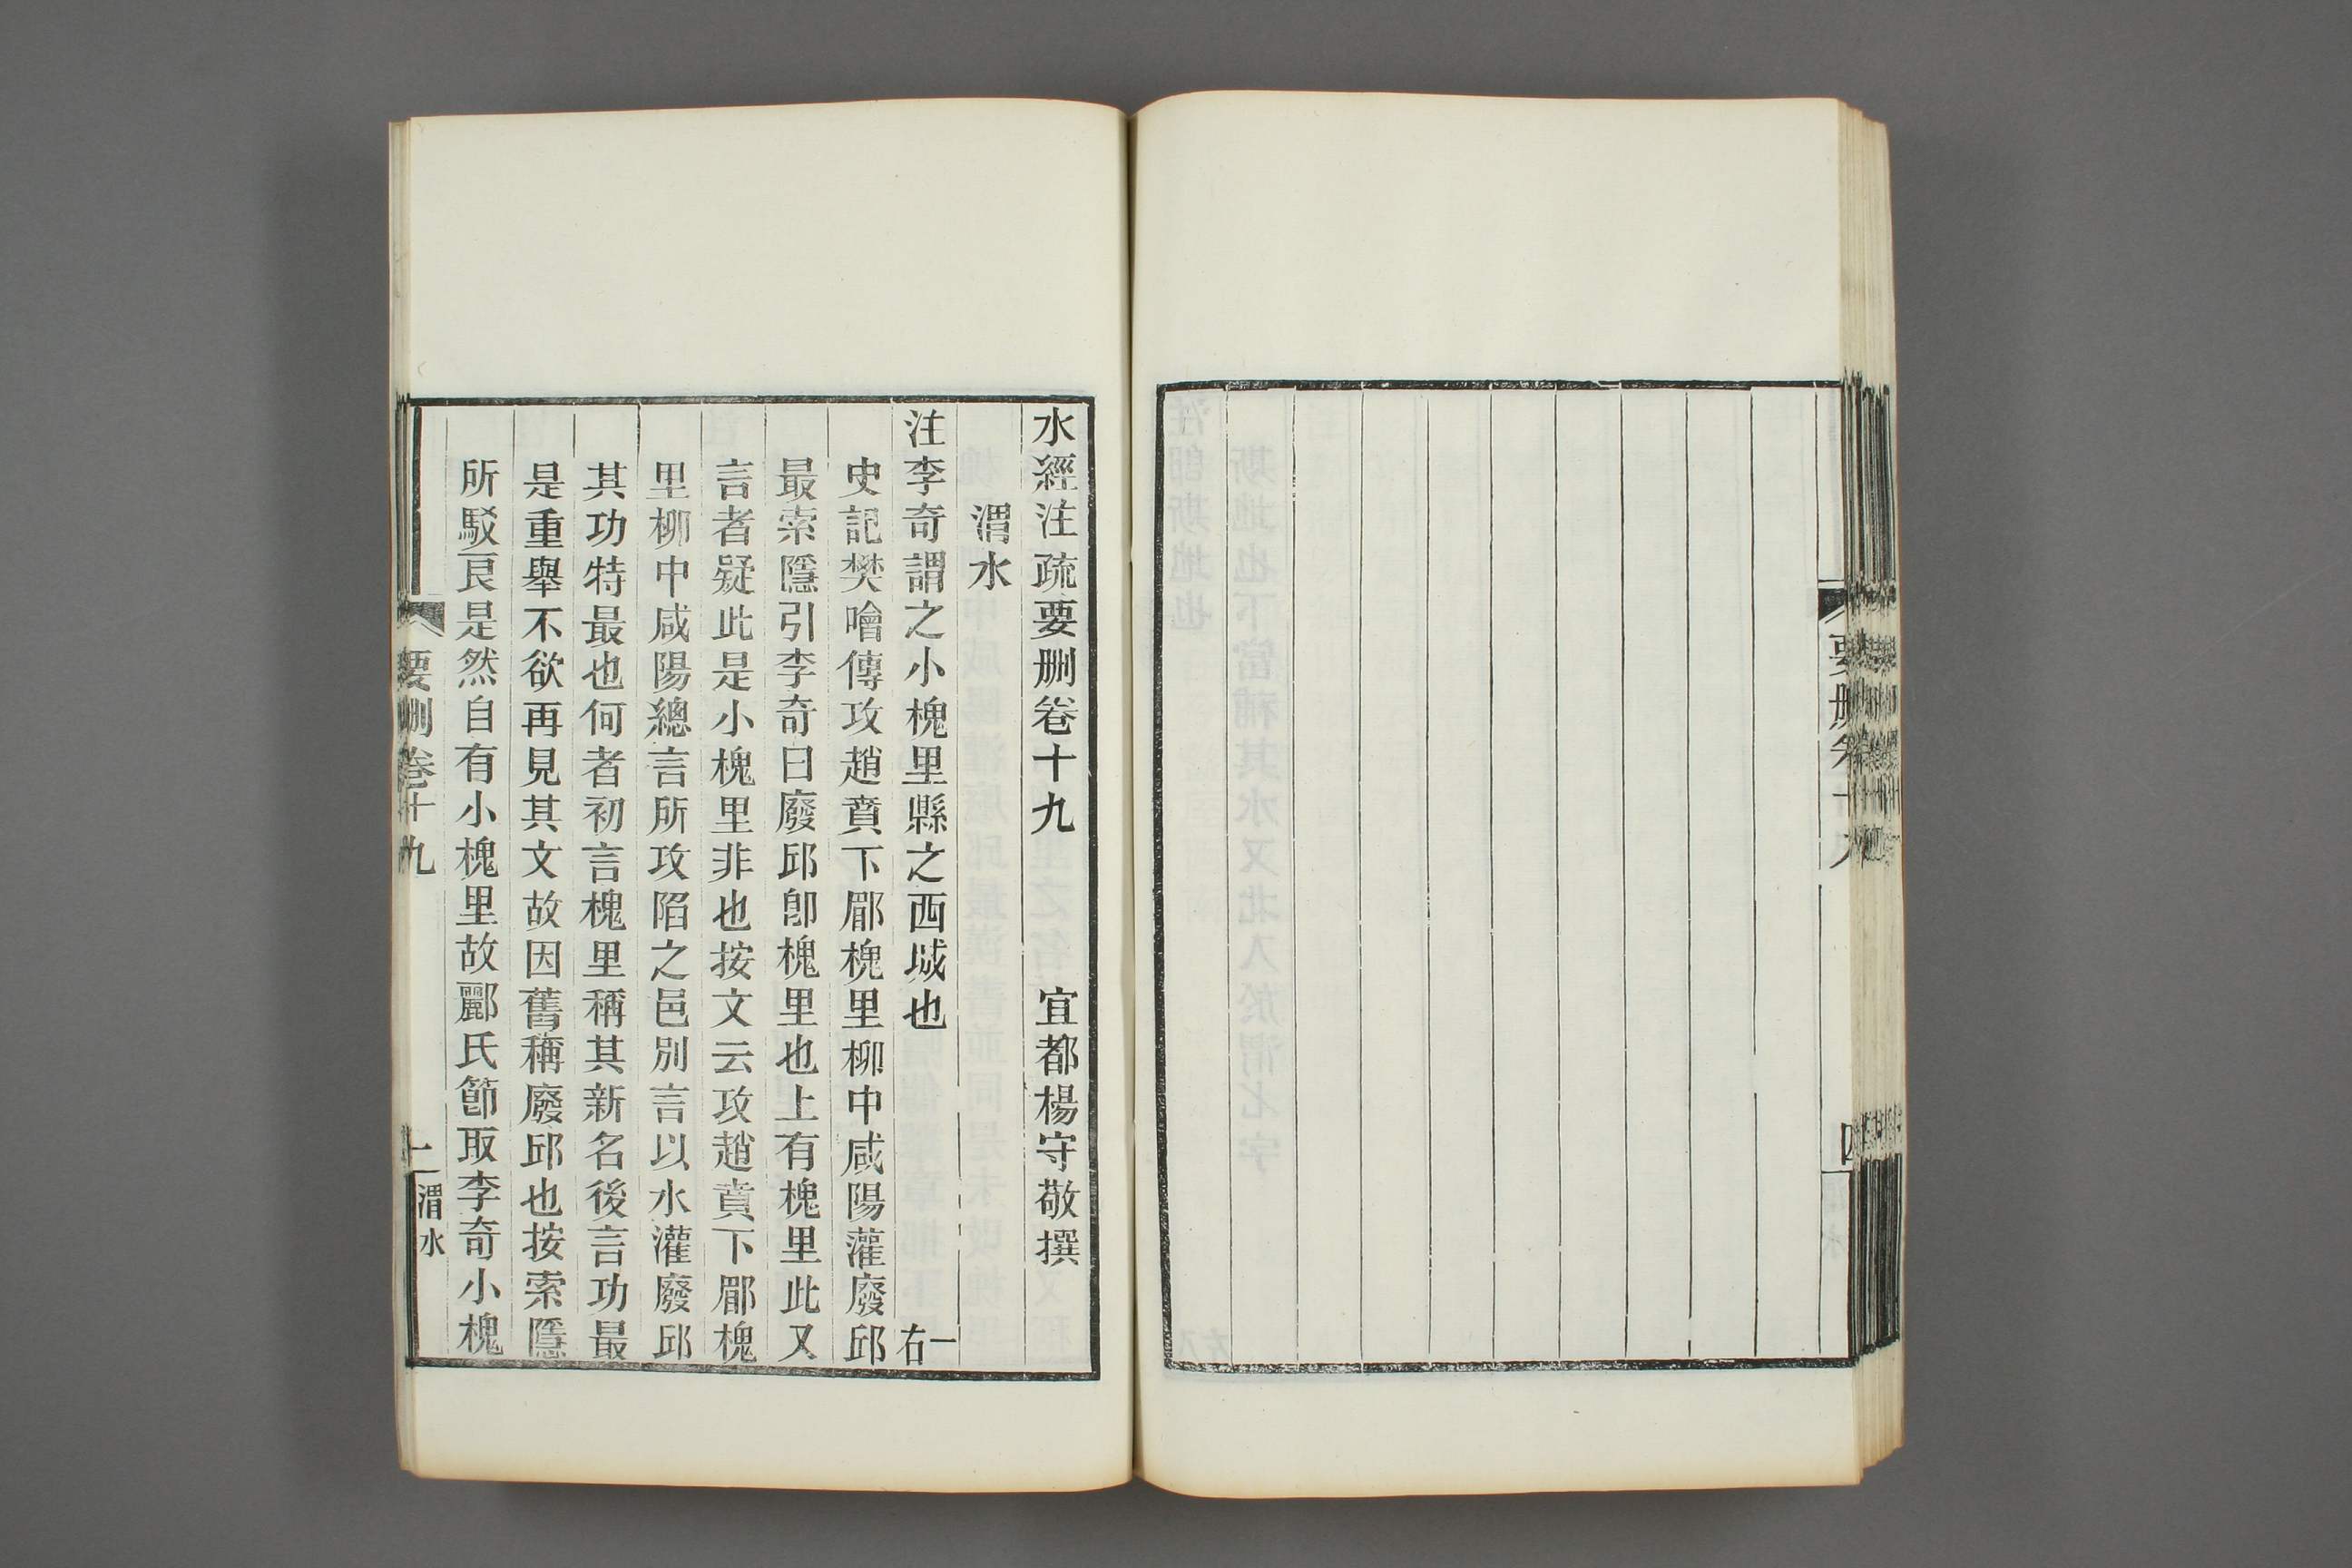 水經注疏要刪卷十九　宜都楊守敬撰
渭水
注李奇謂之小槐里縣之西城也　一右
史記樊噲傳攻趙賁下郿槐里柳中咸陽灌廢邱
最索隱引李奇曰廢邱卽槐里也上有槐里此又
言者疑此是小槐里非也按文云攻趙賁下郿槐
里柳中咸陽總言所攻陷之邑別言以水灌廢邱
其功特最也何者初言槐里稱其新名後言功最
是重舉不欲再見其文故因舊稱廢邱也按索隱
所駁艮是然自有小槐里故酈氏節取李奇小槐
要刪卷十九　一　渭水